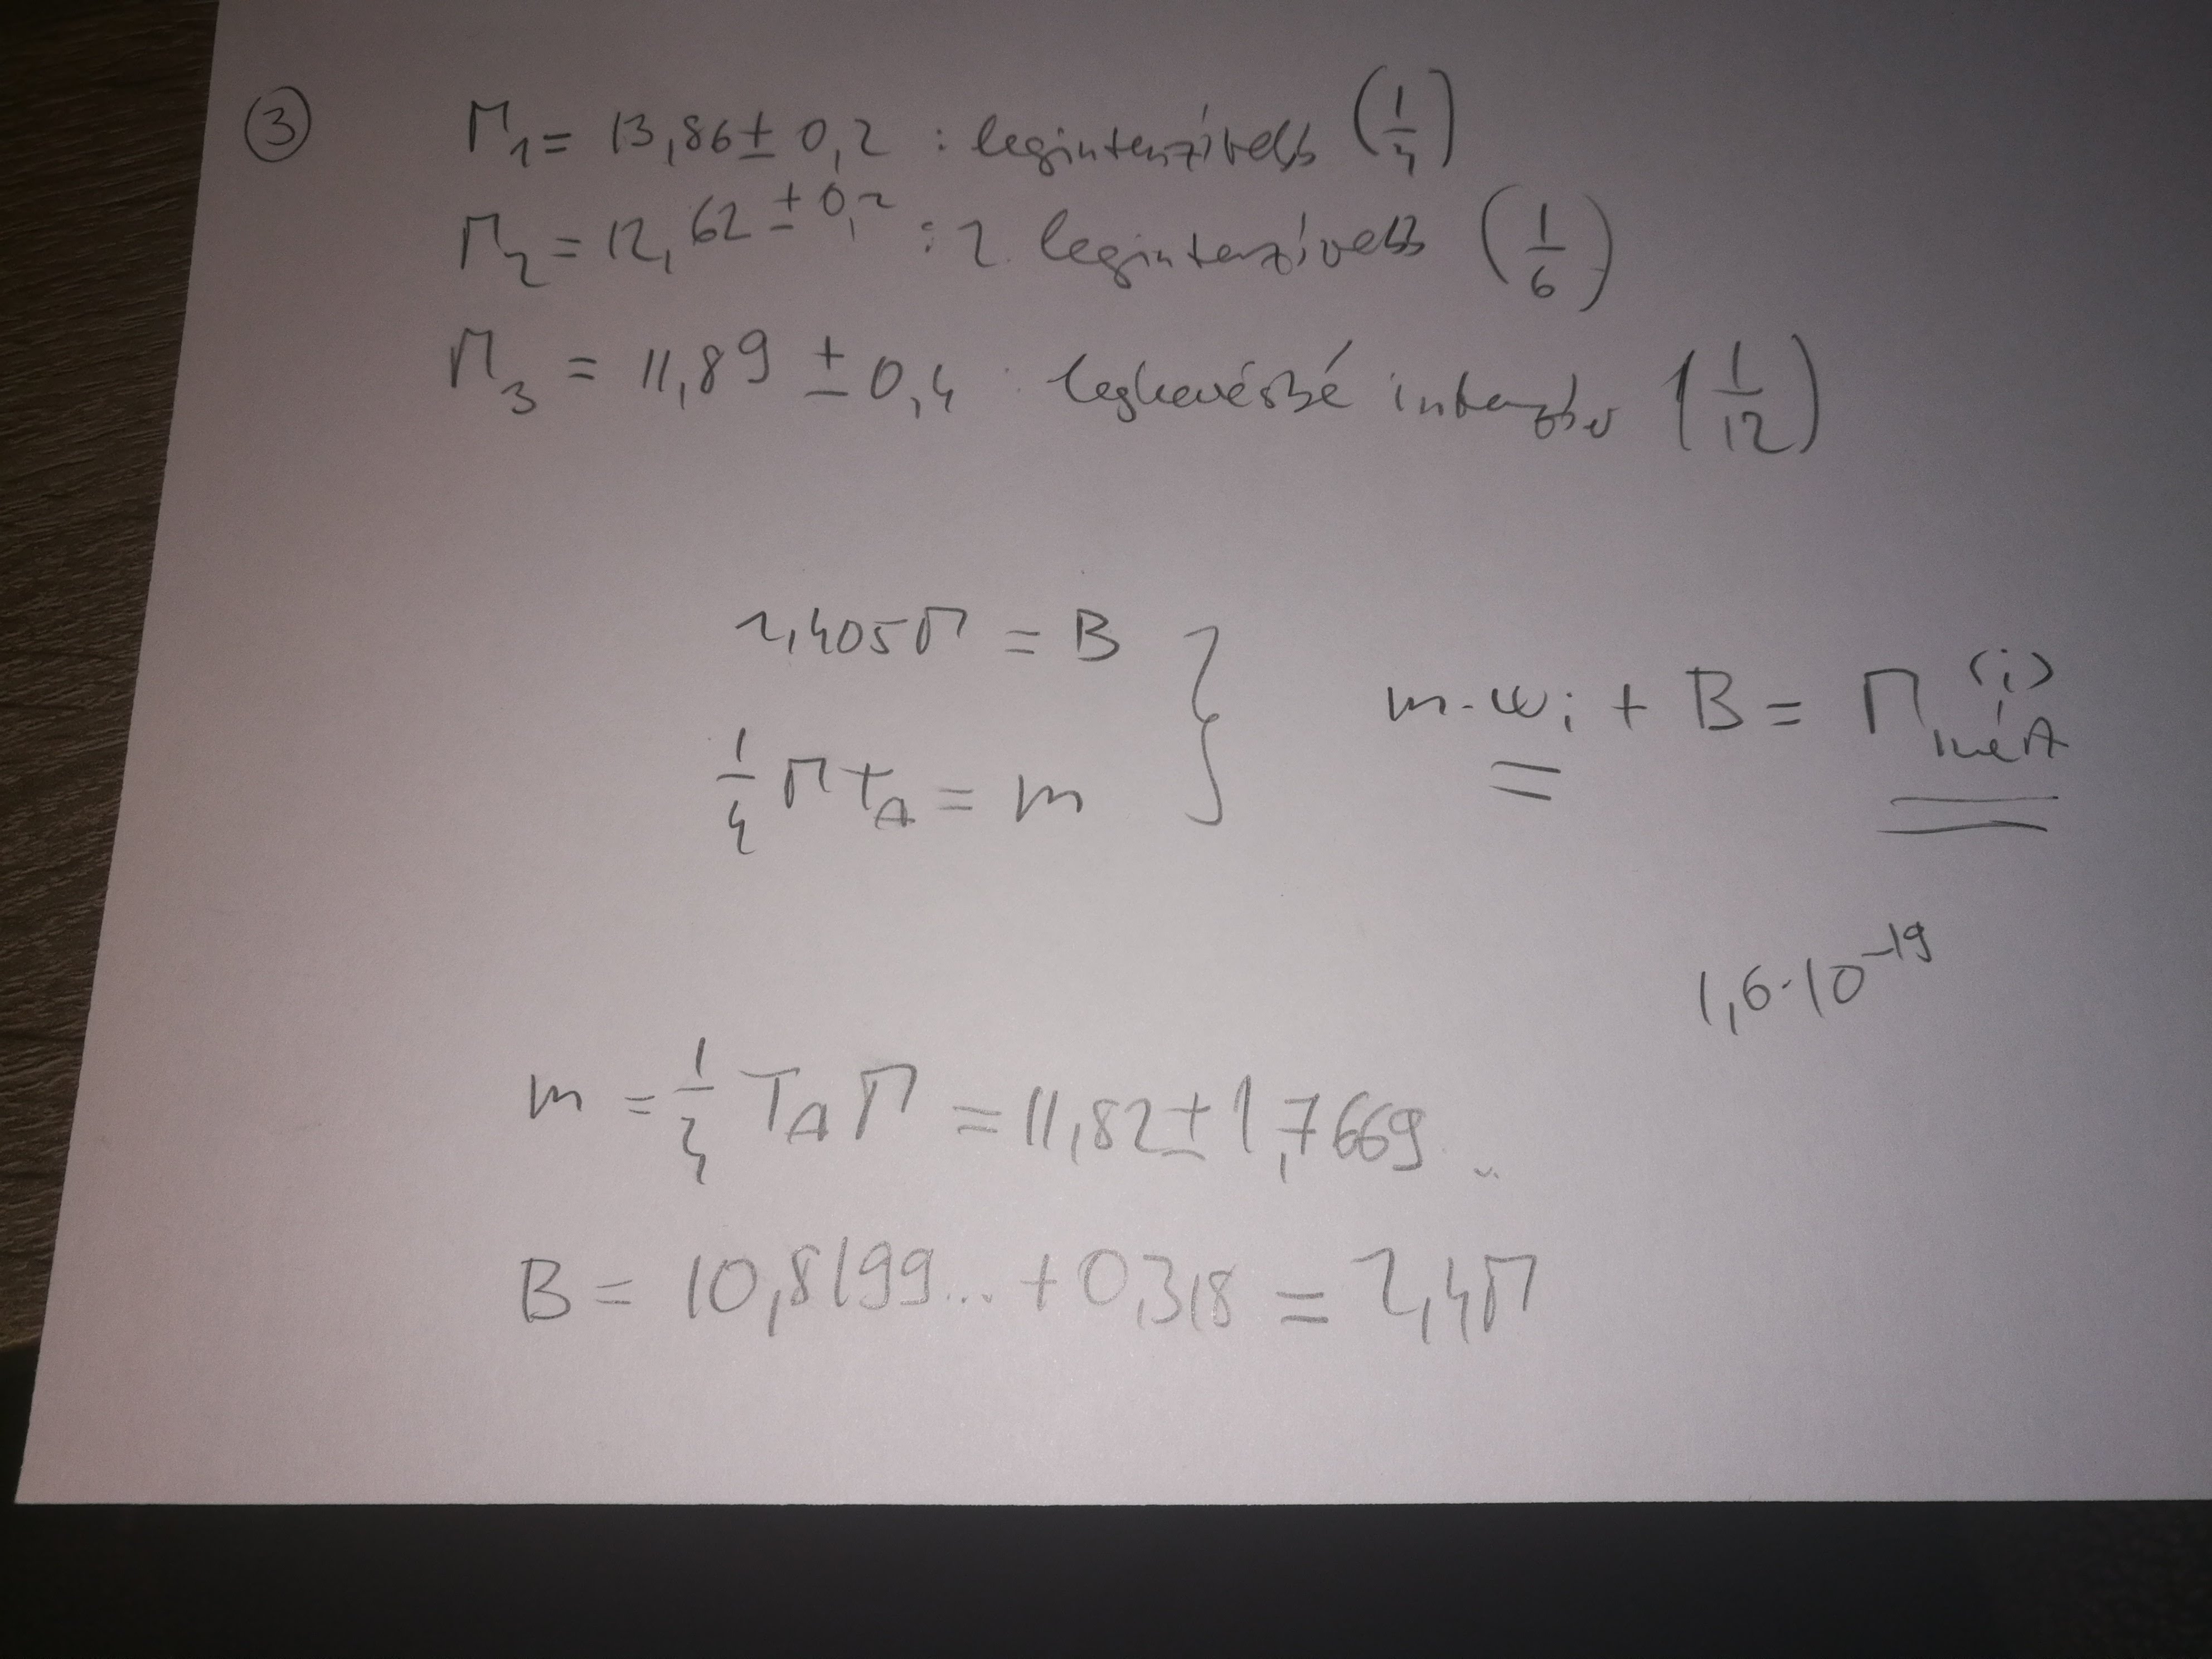 ③ Γ₁ = 13,86 ± 0,2 : legintenzívebb (1/4)
Γ₂ = 12,62 ± 0,2 : 2. legintenzívebb (1/6)
Γ₃ = 11,89 ± 0,4 : legkevésbé intenzív (1/12)
2,405Γ = B
m·wᵢ + B = Γ⁽ⁱ⁾ mért
1/4 Γ t_A = m
1,6·10⁻¹⁹
m = 1/4 T_A Γ = 11,82 ± 1,7669...
B = 10,8199... + 0,318 = 2,4Γ